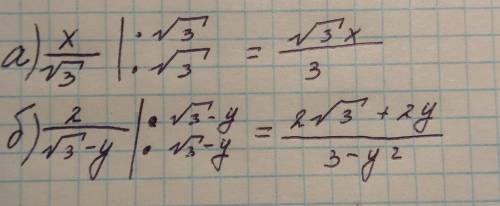 а) x/√3 | · √3 / · √3 = √3 x/3
б) 2/(√3-y) | · √3-y / · √3-y = (2√3 + 2y)/(3-y²)